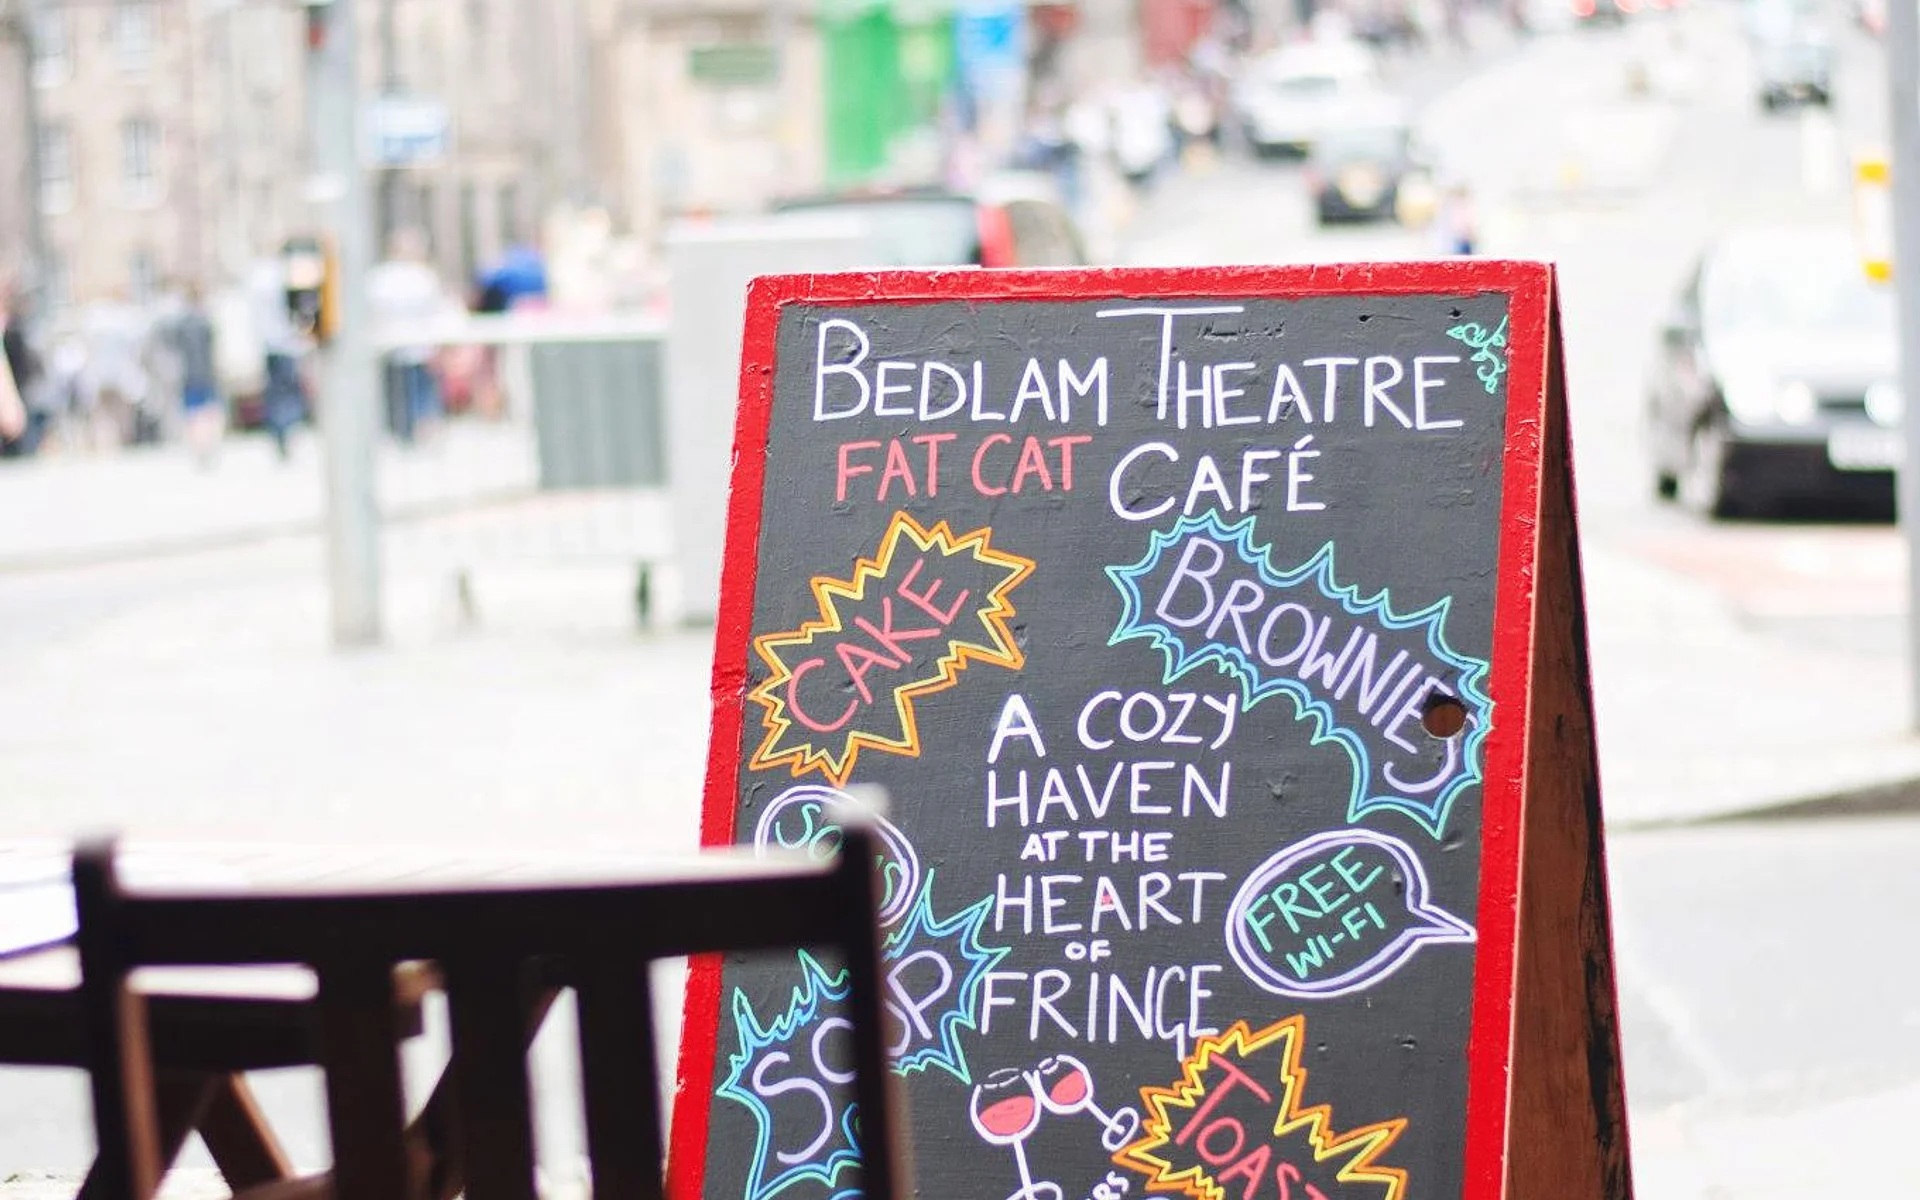 BEDLAM THEATRE
FAT CAT CAFÉ
CAKE
BROWNIES
A COZY
HAVEN
AT THE
HEART
OF
FRINGE
FREE
WI-FI
SOUP
TOAST